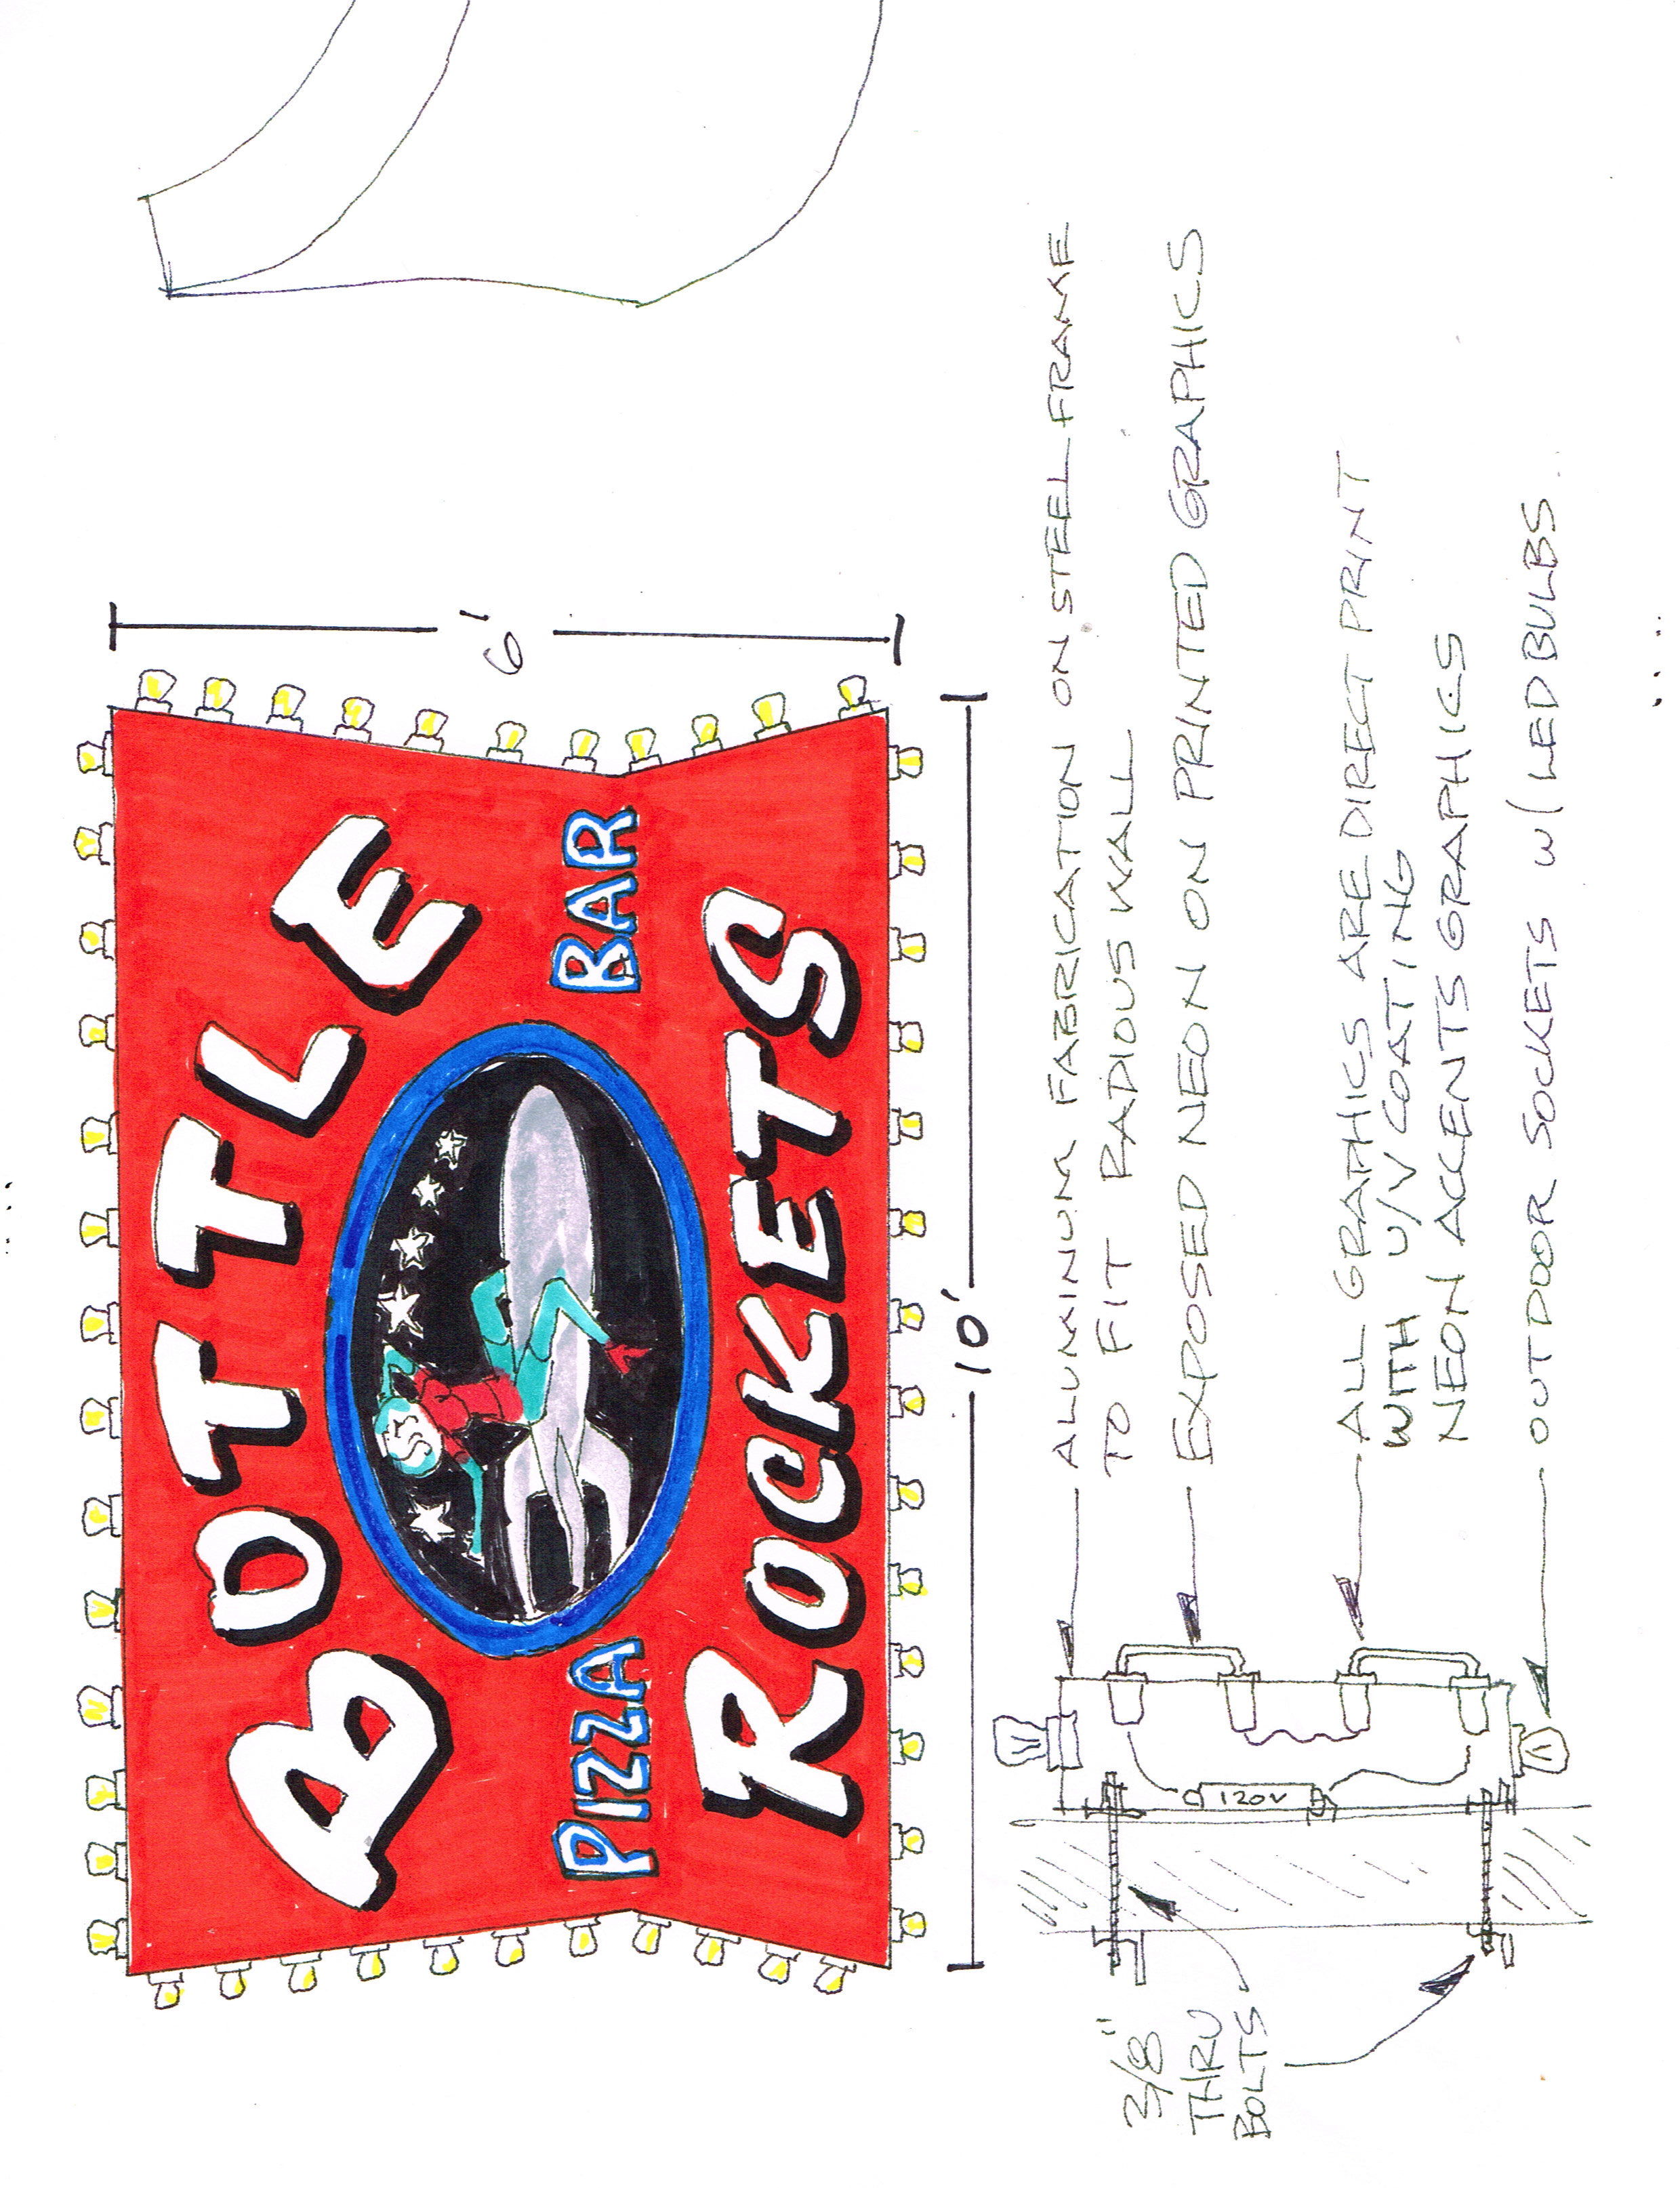 BOTTLE
PIZZA BAR
ROCKETS
6'
10'
ALLUMINUM FABRICATION ON STEEL FRAME
TO FIT RADIOUS WALL
EXPOSED NEON ON PRINTED GRAPHICS
ALL GRAPHICS ARE DIRECT PRINT
WITH U/V COATING
NEON ACCENTS GRAPHICS
OUTDOOR SOCKETS W/ LED BULBS
120V
3/8"
THRU
BOLTS